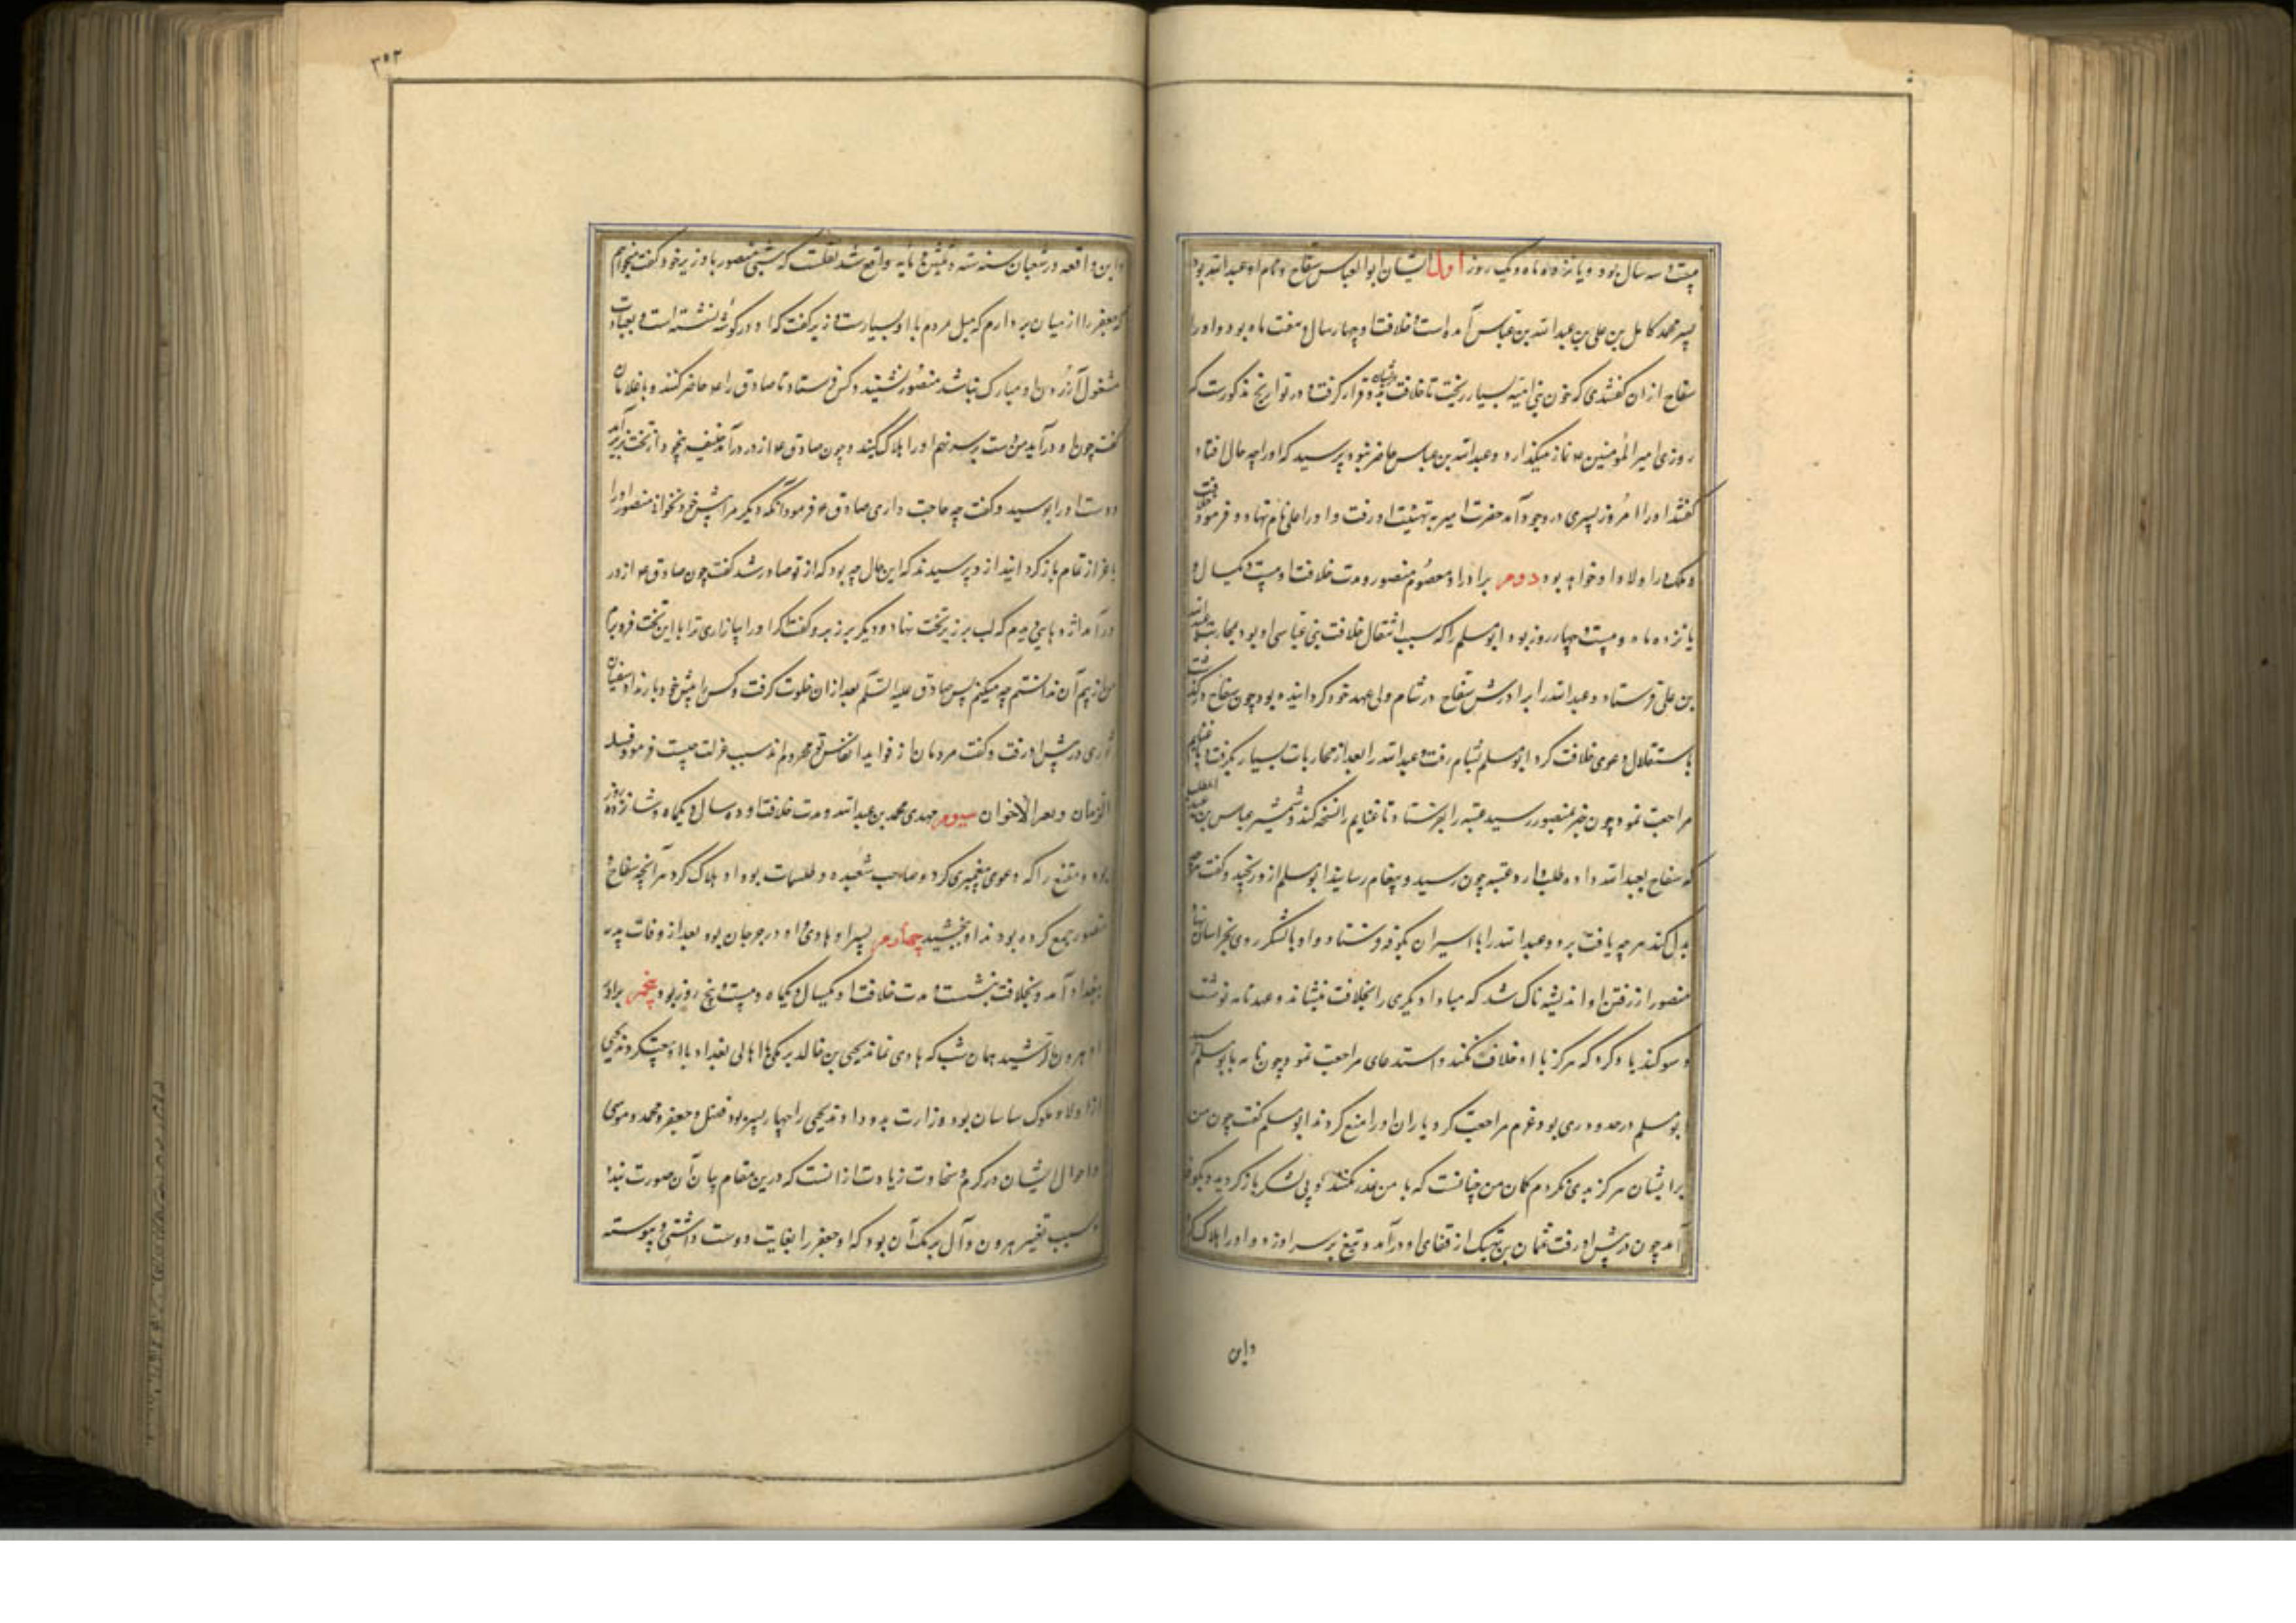 بیست و سه سال بود و یازده ماه و یک روز اول ایشان ابوالعباس سفاح و نام او عبدالله بود
پسر محمد کامل بن علی بن عبدالله بن عباس آمده است و خلافت او چهار سال و هفت ماه بود و او را
سفاح از ان گفتندی که خون بنی امیه بسیار ریخت تا خلافت بدو قرار گرفت و در تواریخ مذکورست که
روزی امیر المؤمنین ع نماز میگذارد و عبدالله بن عباس حاضر نبود پرسید که او را چه حال افتاد
گفتند او را امروز پسری در وجود آمد حضرت امیر به تهنیت او رفت و او را علی نام نهاد و فرمود
و ملک را اولاد او خواهد بود دوم برادر او منصور و مدت خلافت او بیست و یکسال و
یازده ماه و بیست و چهار روز بود ابومسلم را که سبب انتقال خلافت ببنی عباس او بود بمحاربت عبدالله
بن علی فرستاد و عبدالله را برادرش سفاح در شام ولی عهد خود گردانیده بود چون سفاح درگذشت
باستقلال دعوی خلافت کرد ابومسلم بشام رفت و عبدالله را بعد از محاربات بسیار بگرفت و با غنایم
مراجعت نمود چون خبر بمنصور رسید عتبه را بفرستاد تا غنایم را نسخه کند و شمشیر عباس بن عبد المطلب
که سفاح بعبدالله داده طلب دارد عتبه چون رسید و پیغام رسانید ابومسلم ازو رنجید و گفت
هرچه یافت برد و عبدالله را با اسیران بکوفه فرستاد و او با لشکر روی بخراسان نهاد
منصور از رفتن او اندیشه ناک شد که مبادا دیگری را بخلافت بنشاند و عهدنامه نوشت
و سوگند یاد کرد که هرگز با او خلاف نکند و استدعای مراجعت نمود چون نامه بابومسلم رسید
ابومسلم در حدود ری بود عزم مراجعت کرد یاران او را منع کردند ابومسلم گفت چون من
با ایشان هرگز بدی نکردم گمان من چنانست که با من غدر نکنند و بی لشکر بازگردید و بکوفه
آمد چون در پیش او رفت عثمان بن نهیک از قفای او درآمد و تیغ بر سر او زد و او را هلاک کرد
واین
۳۵۳
واین واقعه در شعبان سنه سته و ثلثین و مایه واقع شد نقلست که شبی منصور با وزیر خود گفت میخواهم
که جعفر را از میان بردارم که میل مردم با او بسیارست وزیر گفت که او در گوشه نشسته است و بعبادت
مشغول آزردن او مبارک نباشد منصور نشنید و کس فرستاد تا صادق را ع حاضر کنند و با غلامان
گفت چون او درآید من دست بر سر نهم او را هلاک کنید و چون صادق ع از در درآمد خلیفه بیخود از تخت بزیر آمد
و دست او را بوسید و گفت چه حاجت داری صادق ع فرمود آنکه دیگر مرا پیش خود نخوانی منصور او را
باعزاز تمام بازگردانید ازو پرسیدند که این حال چه بود که از تو صادر شد گفت چون صادق ع از در
درآمد اژدهایی دیدم که لب بر زیر تخت نهاد و دیگر بر زبر و گفت اگر او را بیازاری ترا با این تخت فرو برم
من از بیم آن ندانستم چه میکنم پس صادق علیه السلام بعد از ان خلوت گرفت و کس را پیش خود بار نداد سفیان
ثوری در پیش او رفت و گفت مردمان از فواید انفاس تو محروم اند سبب عزلت چیست فرمود فسد
الزمان و تغیر الاخوان سیوم مهدی محمد بن عبدالله و مدت خلافت او ده سال و یکماه و شانزده روز
بود و مقنع را که دعوی پیغمبری کرد و صاحب شعبده و طلسمات بود او هلاک کرد هر آنچه سفاح و
منصور جمع کرده بودند او ببخشید چهارم پسر او هادی او در جرجان بود بعد از وفات پدر
ببغداد آمد و بخلافت بنشست و مدت خلافت او یکسال و یکماه و بیست و پنج روز بود پنجم برادر
او هرون الرشید همان شب که هادی نماند یحیی بن خالد برمکی با اهالی بغداد با او بیعت کردند یحیی
از اولاد ملوک ساسان بود وزارت بدو داد و یحیی را چهار پسر بود فضل و جعفر و محمد و موسی
و احوال ایشان در کرم و سخاوت زیادت از انست که درین مقام بیان آن صورت بندد
سبب تغییر هرون و آل برمک آن بود که او جعفر را بغایت دوست داشتی و پیوسته